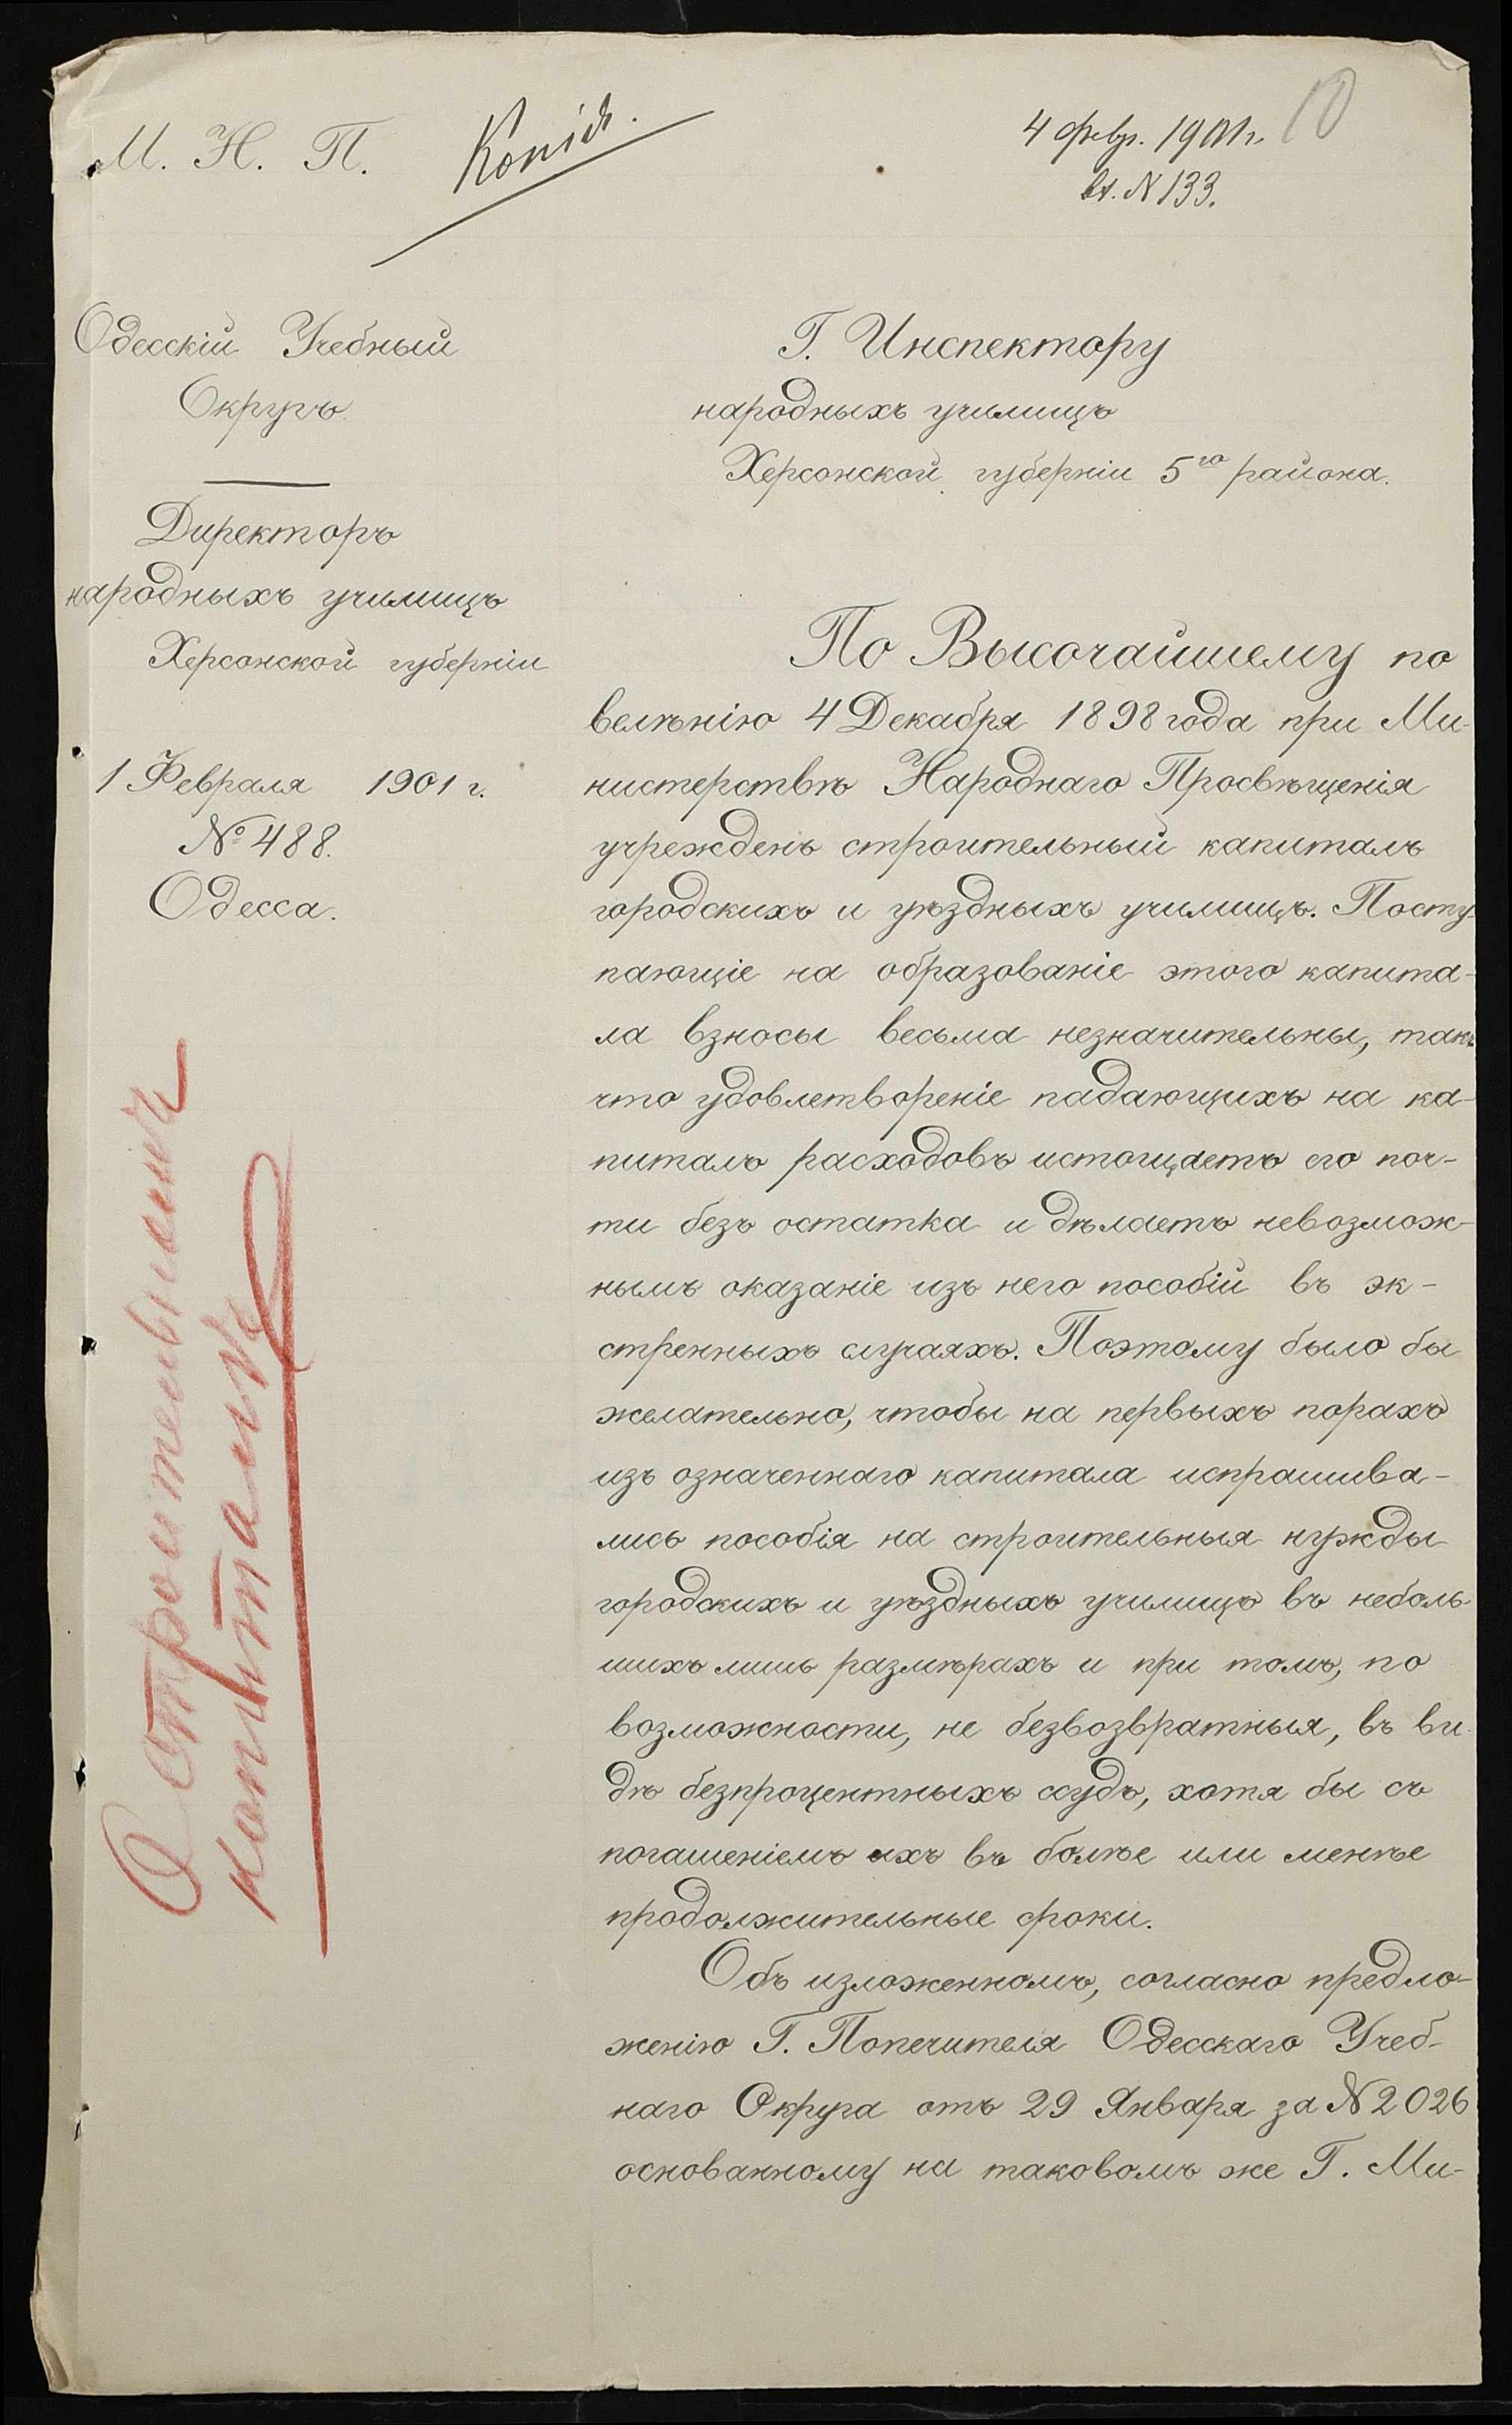 М. Н. П.
Копія.
4 февр. 1901 г.
вх. N 133.
10
Одесскій Учебный
Округъ.
Директоръ
народныхъ училищъ
Херсонской губерніи
1 Февраля 1901 г.
№ 488.
Одесса.
О строительномъ
капиталѣ
Г. Инспектору
народныхъ училищъ
Херсонской губерніи 5го района.
По Высочайшему по
велѣнію 4 Декабря 1898 года при Ми-
нистерствѣ Народнаго Просвѣщенія
учрежденъ строительный капиталъ
городскихъ и уѣздныхъ училищъ. Посту-
пающіе на образованіе этого капита-
ла взносы весьма незначительны, такъ
что удовлетвореніе падающихъ на ка-
питалъ расходовъ истощаетъ его поч-
ти безъ остатка и дѣлаетъ невозмож-
нымъ оказаніе изъ него пособій въ эк-
стренныхъ случаяхъ. Поэтому было бы
желательно, чтобы на первыхъ порахъ
изъ означеннаго капитала испрашива-
лись пособія на строительныя нужды
городскихъ и уѣздныхъ училищъ въ неболь-
шихъ лишь размѣрахъ и при томъ, по
возможности, не безвозвратныя, въ ви-
дѣ безпроцентныхъ ссудъ, хотя бы съ
погашеніемъ ихъ въ болѣе или менѣе
продолжительные сроки.
Объ изложенномъ, согласно предло-
женію Г. Попечителя Одесскаго Учеб-
наго Округа отъ 29 Января за N 2026
основанному на таковомъ же Г. Ми-